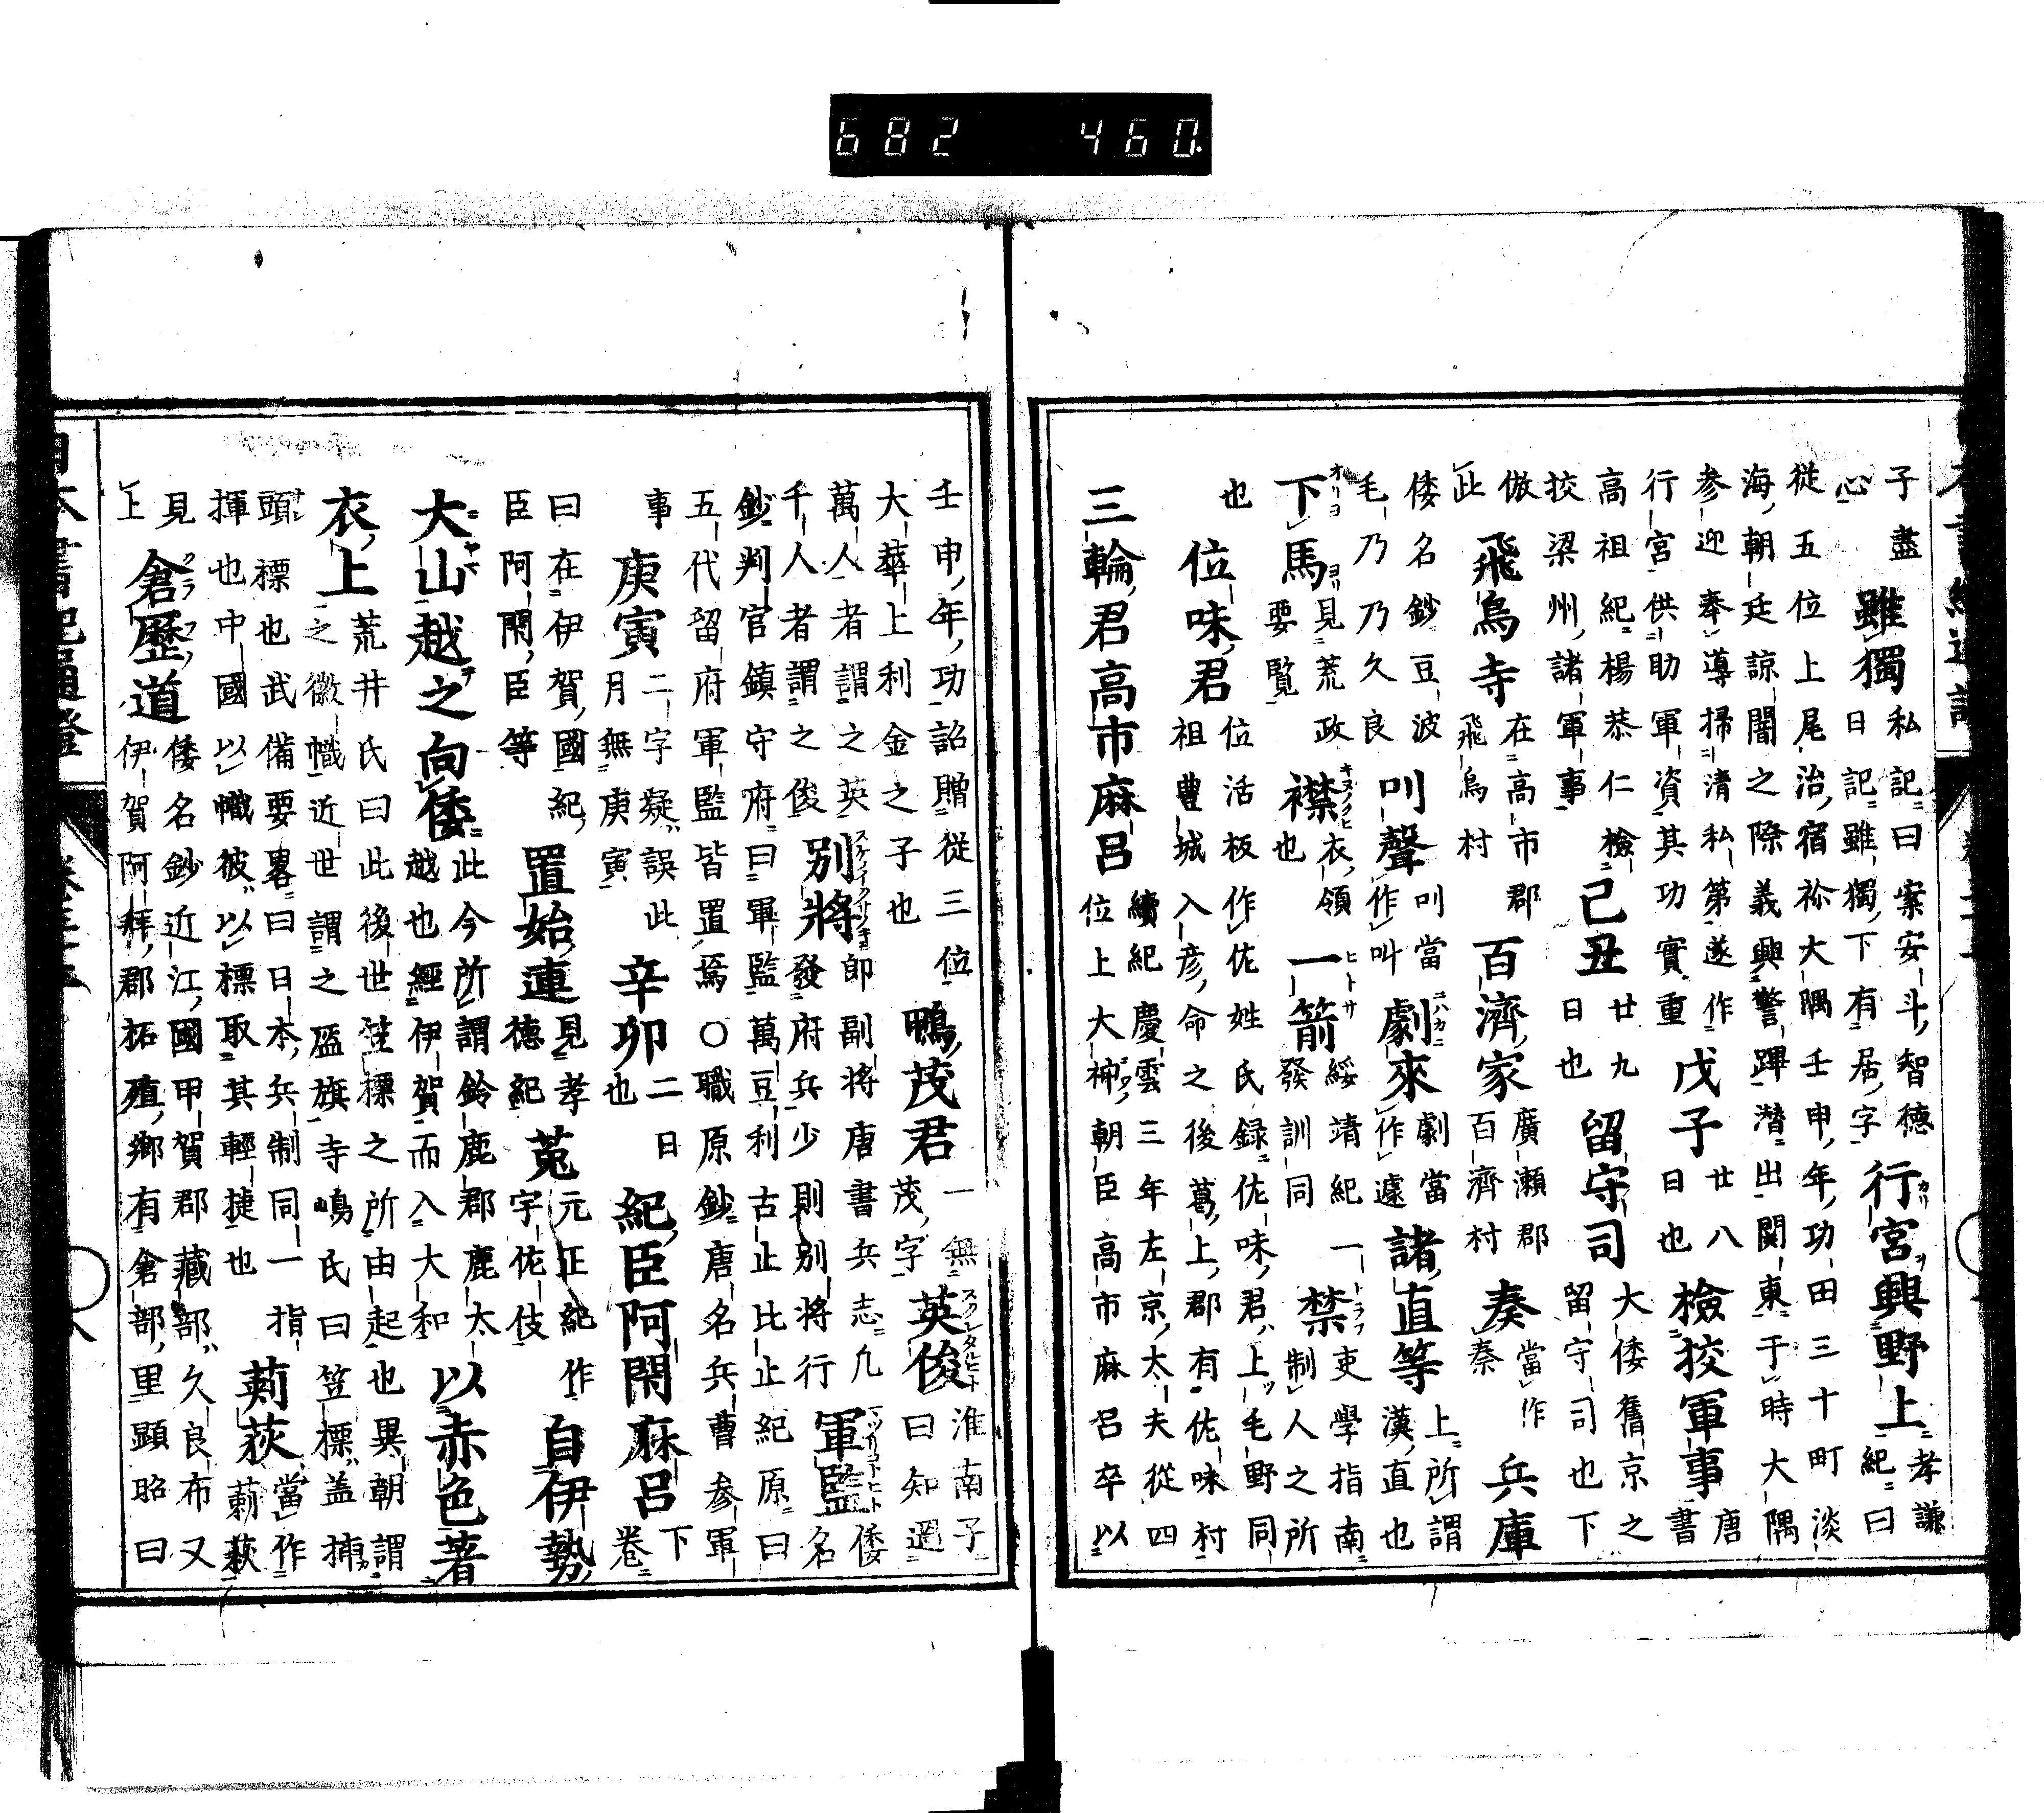 子盡心雖獨私記曰案安斗智德日記雖獨下有居字行宮興野上孝謙紀曰
從五位上尾治宿祢大隅壬申年功田三十町淡海朝廷諒闇之際義興警蹕潜出関東于時大隅
参迎奉導掃清私第遂作行宮供助軍資其功實重戊子廿八日也檢挍軍事唐書
高祖紀楊恭仁檢挍梁州諸軍事己丑廿九日也留守司大倭舊京之留守司也下
倣此飛鳥寺在高市郡飛鳥村百濟家廣瀬郡百濟村奏當作秦兵庫
倭名鈔豆波毛乃乃久良叫聲叫當作叫劇來劇當作遽諸直等上所謂漢直也
下馬見荒政要覧襟衣領也一箭綏靖紀一發訓同禁吏學指南制人之所
也位味君位活板作佐姓氏録佐味君上毛野同祖豊城入彦命之後葛上郡有佐味村
三輪君高市麻呂續紀慶雲三年左京太夫從四位上大神朝臣高市麻呂卒以
壬申年功詔贈從三位大華上利金之子也鴨茂君一無茂字英俊淮南子曰知過
萬人者謂之英千人者謂之俊別將卽副将唐書兵志凢發府兵少則别将行軍監倭名
鈔判官鎮守府曰軍監萬豆利古止比止紀原曰五代留府軍監皆置焉〇職原鈔唐名兵曹参軍
事庚寅二字疑誤此月無庚寅辛卯二日也紀臣阿閇麻呂下卷
曰在伊賀國紀臣阿閇臣等置始連見孝德紀菟元正紀作宇佐伎自伊勢
大山越之向倭此今所謂鈴鹿郡鹿太越也經伊賀而入大和以赤色著
衣上荒井氏曰此後世笠標之所由起也異朝謂之徽幟近世謂之盔旗寺嶋氏曰笠標蓋捕
頭標也武備要畧曰日本兵制同一指揮也中國以幟彼以標取其輕捷也莿荻當作莿萩
見上倉歷道倭名鈔近江國甲賀郡藏部久良布又伊賀阿拜郡柘殖鄉有倉部里顯昭曰
日本書紀通證
682 460